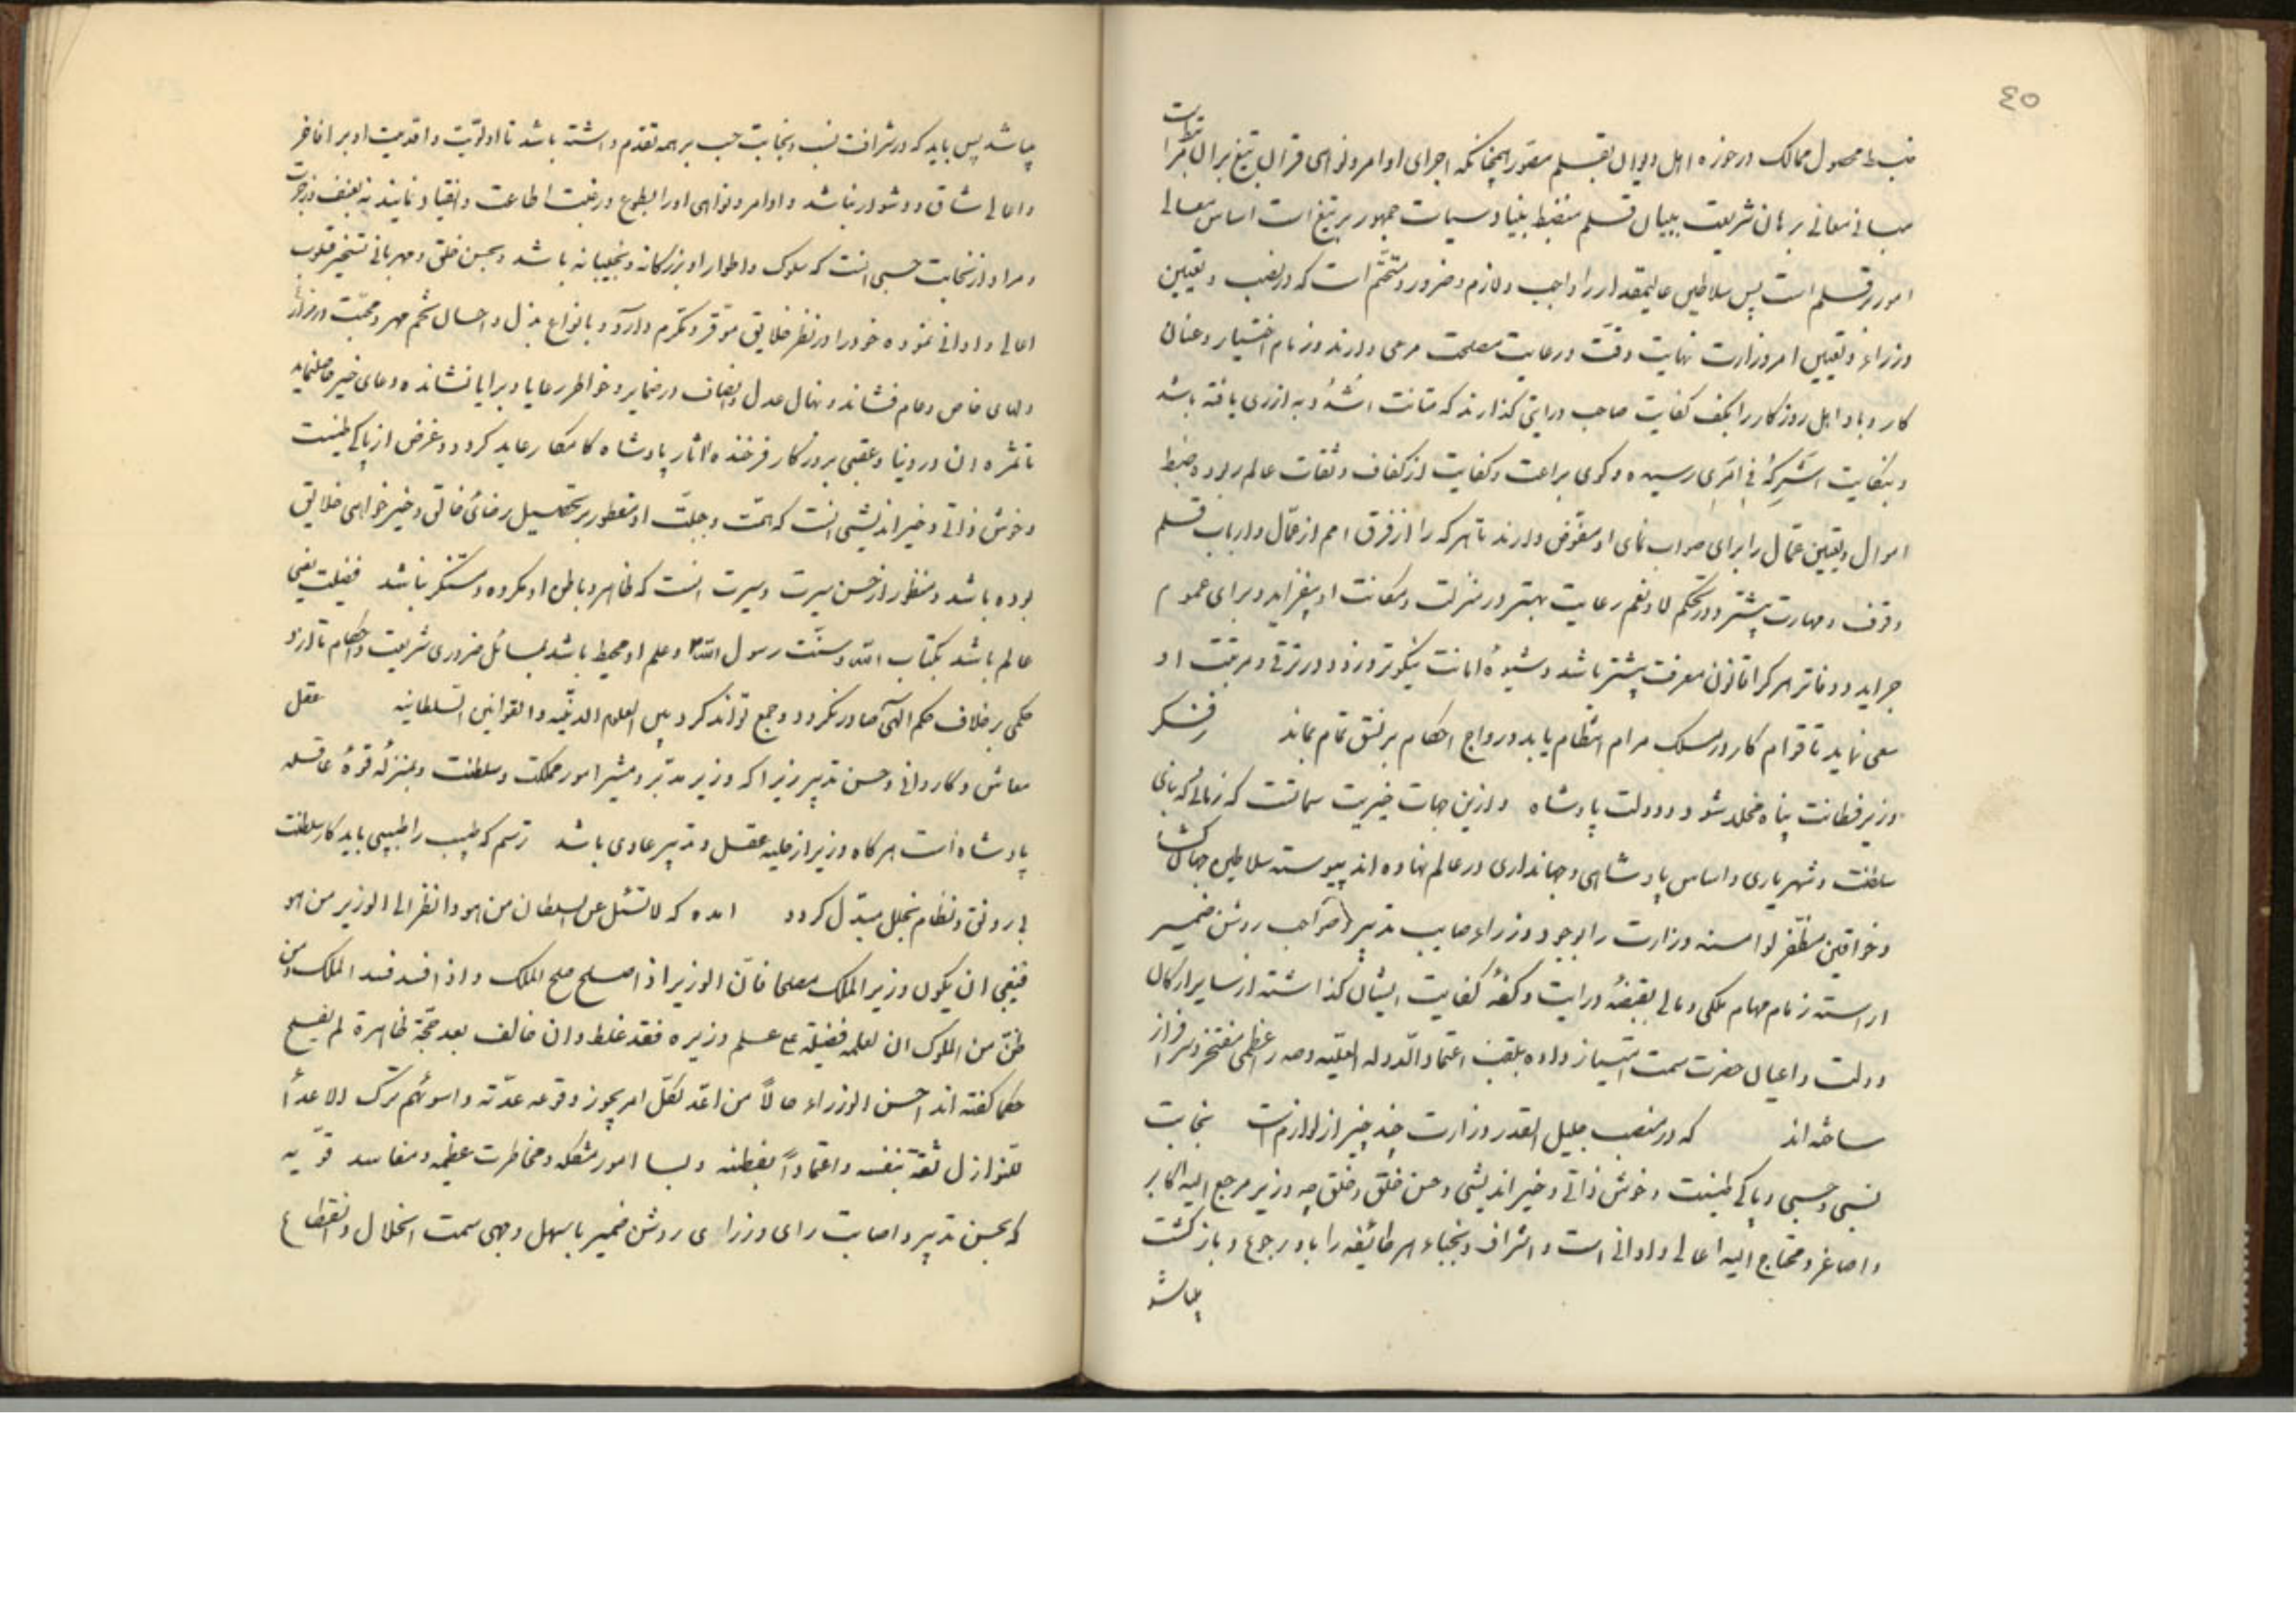 ٤٥
ضبط محصول ممالک در حوزه اهل دیوان بقلم مقرر همچنانکه اجرای اوامر و نواهی قرآن بتیغ بران است
مبانی معانی برهان شریعت ببیان قلم منضبط بنیاد سیاسات جمهور بر تیغ است اساس معالی
امور بر قلم است پس سلاطین عالیمقدار را واجب و لازم و ضرور و متحتم است که در نصب و تعیین
وزراء و تعیین امر وزارت نهایت دقت و رعایت مصلحت مرعی دارند و زمام اختیار و عنان
کار و بار اهل روزگار را بکف کفایت صاحب درایتی گذارند که متانت اشدد به ازری یافته باشد
و بکفایت اشرکه فی امری رسیده و گوی براعت و کفایت از کفاف و ثقات عالم ربوده و ضبط
اموال و تعیین عمال را برای صواب نمای او مفوض دارند تا هر که را از فرق امم از عمال و ارباب قلم
وقوف و مهارت بیشتر و در تحکم لا و نعم رعایت بهتر در منزلت و مکانت او بیفزاید و برای عموم
جراید و دفاتر هر کرا قانون معرفت بیشتر باشد و شیوهٔ امانت نیکوتر ورزد و در ترقی و مرتبت او
سعی نماید تا قوام کار در مسلک مرام انتظام یابد و رواج احکام بر نسق تمام بماند
وزیر فطانت پناه مخلد شود دولت پادشاه و ازین جهات خیریت سماتست که زمانی که بانی
سلطنت و شهریاری و اساس پادشاهی و جهانداری در عالم نهاده اند پیوسته سلاطین جهان گشا
و خواقین مظفر لوا مسند وزارت را بوجود وزراء صایب تدبیر و صواحب روشن ضمیر
اراسته زمام مهام ملکی و مالی بقبضهٔ درایت و کفهٔ کفایت ایشان گذاشته از سایر ارکان
دولت و اعیان حضرت سمت امتیاز داده بلقب اعتماد الدوله العلیه و صدر اعظمی مفتخر و سرافراز
ساخته اند که در منصب جلیل القدر وزارت چند چیز از لوازم است نجابت
نسبی و حسبی و پاکی طینت و خوش ذاتی و خیراندیشی و حسن خلق و خلق چه وزیر مرجع الیه اکابر
و اصاغر و محتاج الیه اعالی و ادانی است و اشراف و نجباء هر طائفه را باو رجوع و بازگشت
میباشد
میباشد پس باید که در شرافت نسب و نجابت حسب بر همه تقدم داشته باشد تا اولویت و اقدمیت او بر افاخر
و اعالی شاق و دشوار نباشد و اوامر و نواهی او را بطوع و رغبت اطاعت و انقیاد نمایند نه بعنف و زجر
و مراد از نجابت حسبی انست که سلوک و اطوار او بزرگانه و نجیبانه باشد و بحسن خلق و مهربانی تسخیر قلوب
اعالی و ادانی نموده خود را در نظر خلایق موقر و مکرم دارد و بانواع بذل و احسان تخم مهر و محبت در مزارع
دلهای خاص و عام فشاند و نهال عدل و انصاف در ضمایر و خواطر رعایا و برایا نشانده دعای خیر حاصل نماید
تا ثمره ان در دنیا و عقبی بروزگار فرخنده اثار پادشاه کامکار عاید گردد و غرض از پاکی طینت
و خوش ذاتی و خیراندیشی انست که همت و جبلت او مفطور بر تحصیل رضای خالق و خیر خواهی خلایق
بوده باشد و منظور از حسن سیرت و سیرت انست که ظاهر و باطن او مکروه و مستنکر نباشد فضیلت یعنی
عالم باشد بکتاب الله و سنت رسول الله و علم او محیط باشد بمسائل ضروری شریعت و احکام تا از او
حکمی بر خلاف حکم الهی صادر نگردد و جمع تواند کرد بین العلوم الدینیه و القوانین السلطانیه عقل
معاش و کاردانی و حسن تدبیر زیرا که وزیر مدبر و مشیر امور مملکت و سلطنت و بمنزلهٔ قوهٔ عاقله
پادشاه است هر گاه وزیر از حلیه عقل و تدبیر عادی باشد ترسم که طبیب را طبیبی باید کار سلطنت
بی رونق و نظام بخلل مبدل گردد امده که لا تسئل عن السلطان من هو و انظر الی الوزیر من هو
فینبغی ان یکون وزیر الملک مصلحا فان الوزیر اذا صلح صلح الملک و اذا فسد فسد الملک و من
ظن من الملوک ان لعلمه فضیلة علی علم وزیره فقد غلط و ان خالف بعد حجة ظاهرة لم یفلح
حکما گفته اند احسن الوزراء حالا من اعد لکل امر یجوز وقوعه عدته و اسوئهم ترک الاعداد
للنوازل ثقة بنفسه و اعتمادا بفطنته و بسا امور مشکله و مخاطرت عظیمه و مفاسد قویه
که بحسن تدبیر و اصابت رای وزرای روشن ضمیر باسهل وجهی سمت انحلال و انقطاع